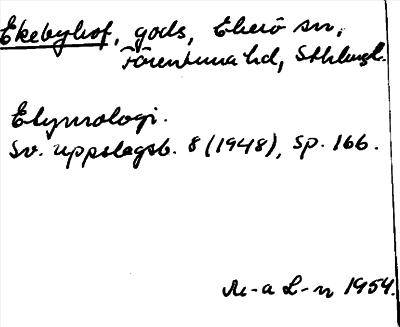 Ekebyhof, gods, Ekerö sn,
Färentuna hd, Sthlmsl.
Etymologi.
Sv. uppslagsb. 8 (1948), sp. 166.
M-a L-n 1954.